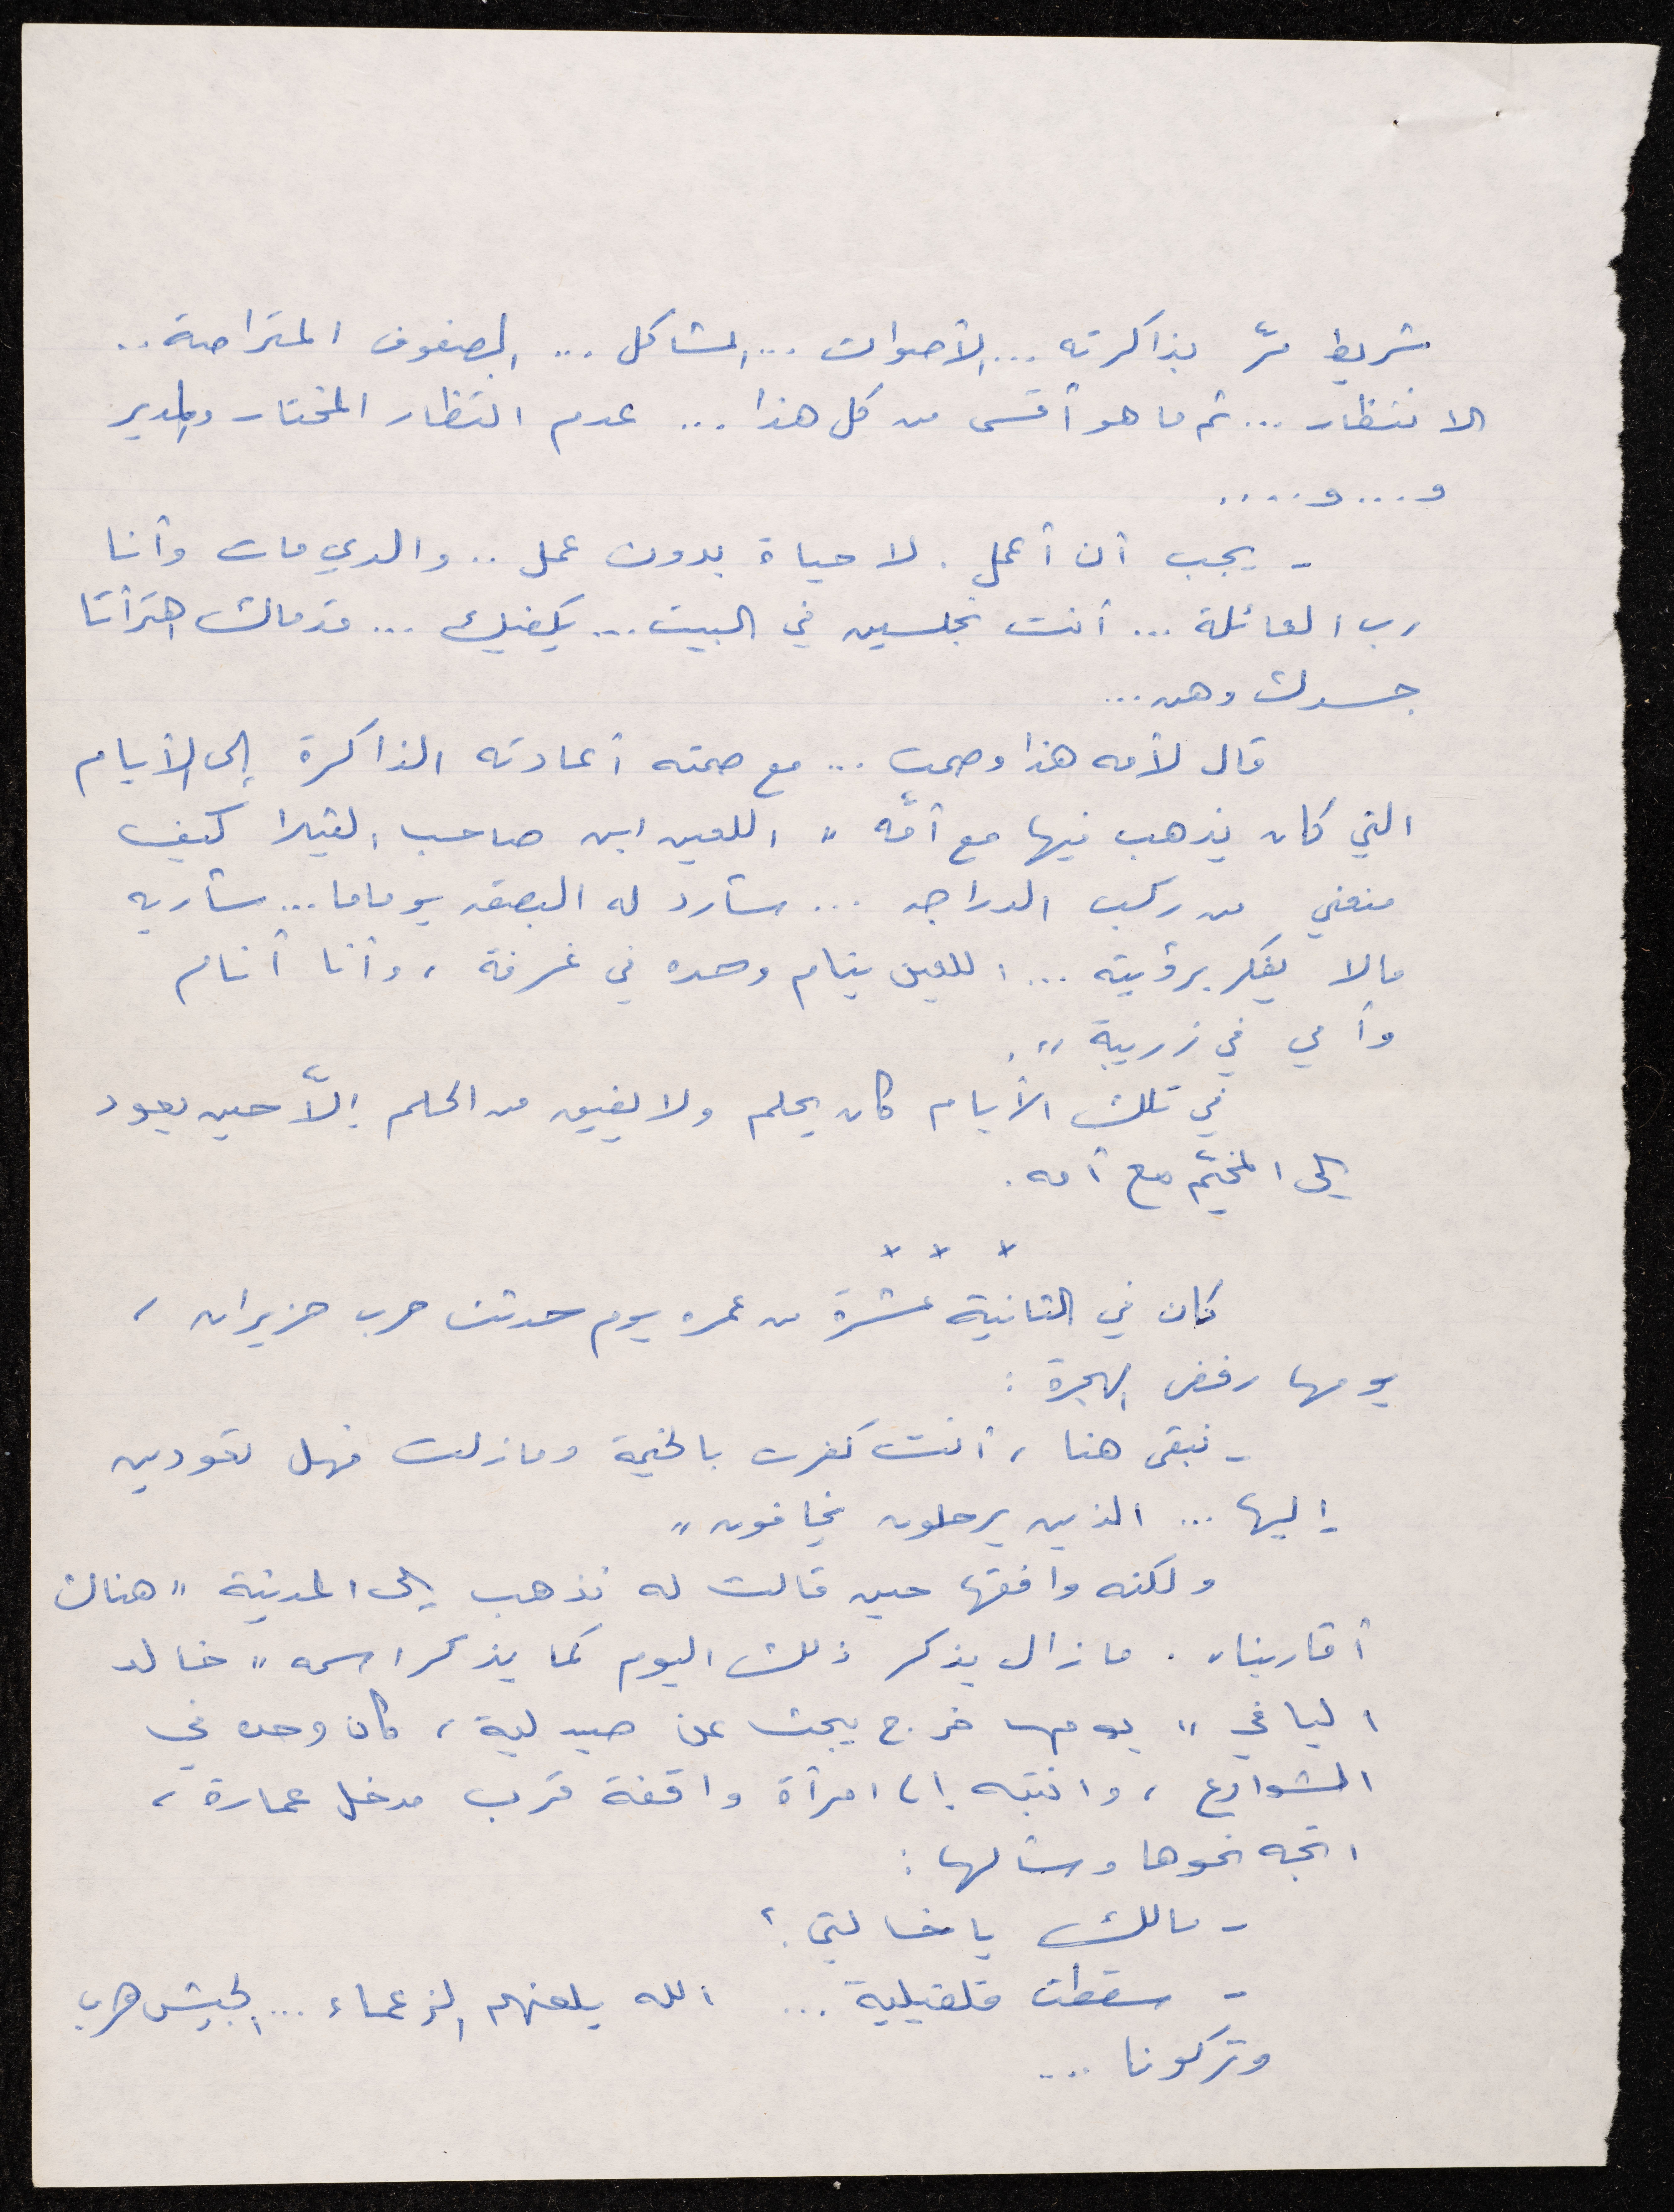 شريط مرّ بذاكرته ... الأصوات ... المشاكل ... الصفوف المتراصة ..
الانتظار ... ثم ما هو أقسى من كل هذا ... عدم انتظار المختار والمدير
و .... و .....
- يجب أن أعمل . لا حياة بدون عمل .. والدي مات وأنا
رب العائلة ... أنت تجلسين في البيت ... يكفيك ... قدماك اهترأتا
جسدك وهن ...
قال لأمه هذا وصمت ... مع صمته أعادته الذاكرة إلى الأيام
التي كان يذهب فيها مع أمّه " اللعين ابن صاحب الفيلا كيف
منعني من ركب الدراجه ... سأرد له البصقه يوما ما ... سأريه
مالا يفكر برؤيته ... اللعين ينام وحده في غرفة ، وأنا أنام
وأمي في زريبة " .
في تلك الأيام كان يحلم ولا يفيق من الحلم إلاّ حين يعود
إلى المخيّم مع أمه .
× × ×
كان في الثانية عشرة من عمره يوم حدثت حرب حزيران ،
يومها رفض الهجرة :
- نبقى هنا ، أنت كفرت بالخيمة ومازلت فهل تعودين
إليها ... الذين يرحلون يخافون "
ولكنه وافقها حين قالت له نذهب إلى المدينة " هناك
أقاربنا " . مازال يذكر ذلك اليوم كما يذكر اسمه " خالد
اليافي " يومها خرج يبحث عن صيدلية ، كان وحده في
الشوارع ، وانتبه إلى امرأة واقفة قرب مدخل عمارة ،
اتجه نحوها وسألها :
- مالك يا خالتي ؟
- سقطت قلقيلية ... الله يلعنهم الزعماء ... الجيش هرب
وتركونا ...